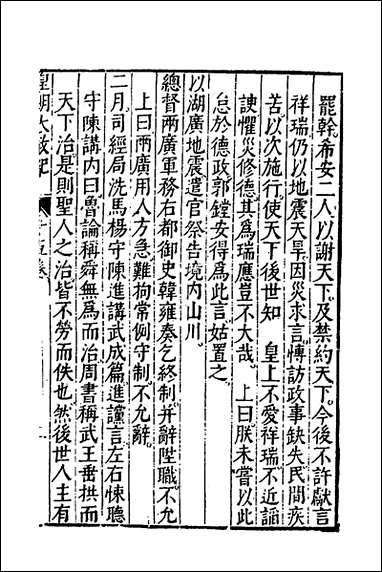 罷幹希安二人以謝天下及禁約天下今後不許獻言
祥瑞仍以地震天旱因災求言博訪政事缺失民間疾
苦以次施行使天下後世知　皇上不愛祥瑞不近謟
諛懼災修德其爲瑞應豈不大哉　上曰朕未嘗以此
怠於德政郭鏜安得爲此言姑置之
以湖廣地震遣官祭告境内山川
總督兩廣軍務右都御史韓雍奏乞終制并辭陞職不允
上曰兩廣用人方急難拘常例守制不允辭
二月司經局洗馬楊守陳進講武成篇進讜言左右悚聽
守陳講内曰魯論稱舜無爲而治周書稱武王垂拱而
天下治是則聖人之治皆不勞而佚也然後世人主有
皇明大政記　十五卷